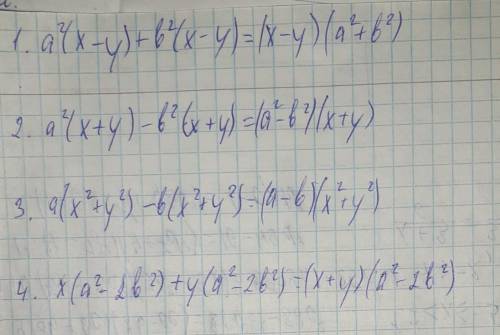 1. a²(x-y)+b²(x-y)=(x-y)(a²+b²)
2. a²(x+y)-b²(x+y)=(a²-b²)(x+y)
3. a(x²+y²)-b(x²+y²)=(a-b)(x²+y²)
4. x(a²-2b²)+y(a²-2b²)=(x+y)(a²-2b²)